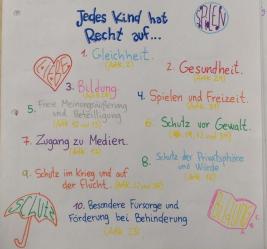 Jedes Kind hat
Recht auf...
SPIELEN
LIEBE
1. Gleichheit.
(Artk. 2)
2. Gesundheit.
(Artk. 24)
3. Bildung
4. Spielen und Freizeit.
(Artk. 31)
5. Freie Meinungsäußerung
und Beteiligung
(Artk. 12 und 13)
6. Schutz vor Gewalt.
7. Zugang zu Medien.
(Artk. 17)
8. Schutz der Privatsphäre
und Würde
(Artk. 16)
9. Schutz im Krieg und auf
der Flucht.
(Artk. 22 und 38)
SCHUTZ
10. Besondere Fürsorge und
Förderung bei Behinderung
(Artk. 23)